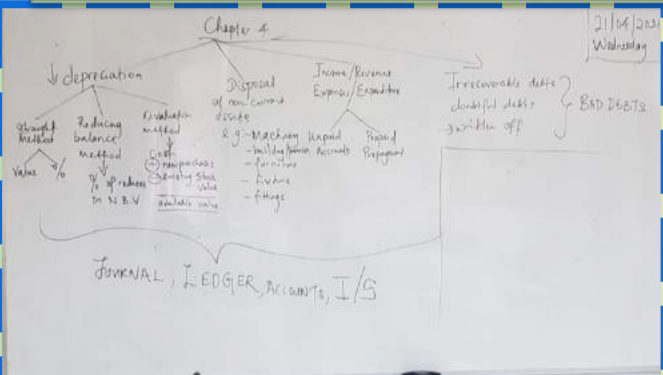 Chapter 4
21/04/202
Wednesday
↓ depreciation
Straight Method
value %
Reducing balance method
% of reduce
N.B.V
Revaluation method
Cost
+ new purchase
Stock value
available value
Disposal
of non current
assets
e.g:- Machinery
- furniture
- fixture
- fittings
Income/Revenue
Expenses/Expenditure
Unpaid
Accounts
Prepaid
Prepayment
Irrecoverable debts
doubtful debts
written off
} BAD DEBTS
JOURNAL, LEDGER, ACCOUNTS, I/S